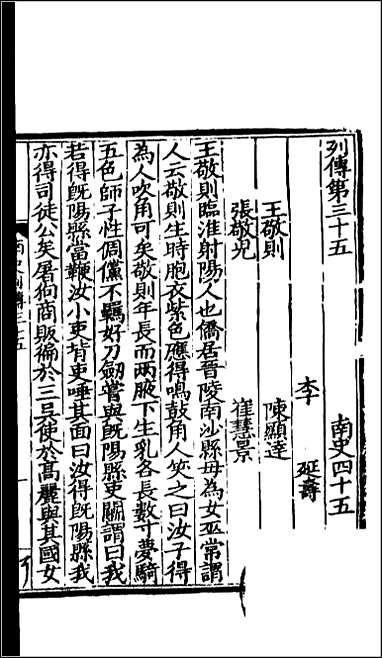 列傳第三十五　南史四十五
李　延壽
王敬則　陳顯達
張敬兒　崔慧景
王敬則臨淮射陽人也僑居晉陵南沙縣母為女巫常謂
人云敬則生時胞衣紫色應得鳴鼓角人笑之曰汝子得
為人吹角可矣敬則年長而兩腋下生乳各長數寸夢騎
五色師子性倜儻不羈好刀劒嘗與旣陽縣吏鬬謂曰我
若得旣陽縣當鞭汝小吏背吏唾其面曰汝得旣陽縣我
亦得司徒公矣屠狗商販徧於三吳使於髙麗與其國女
南史列傳三十五